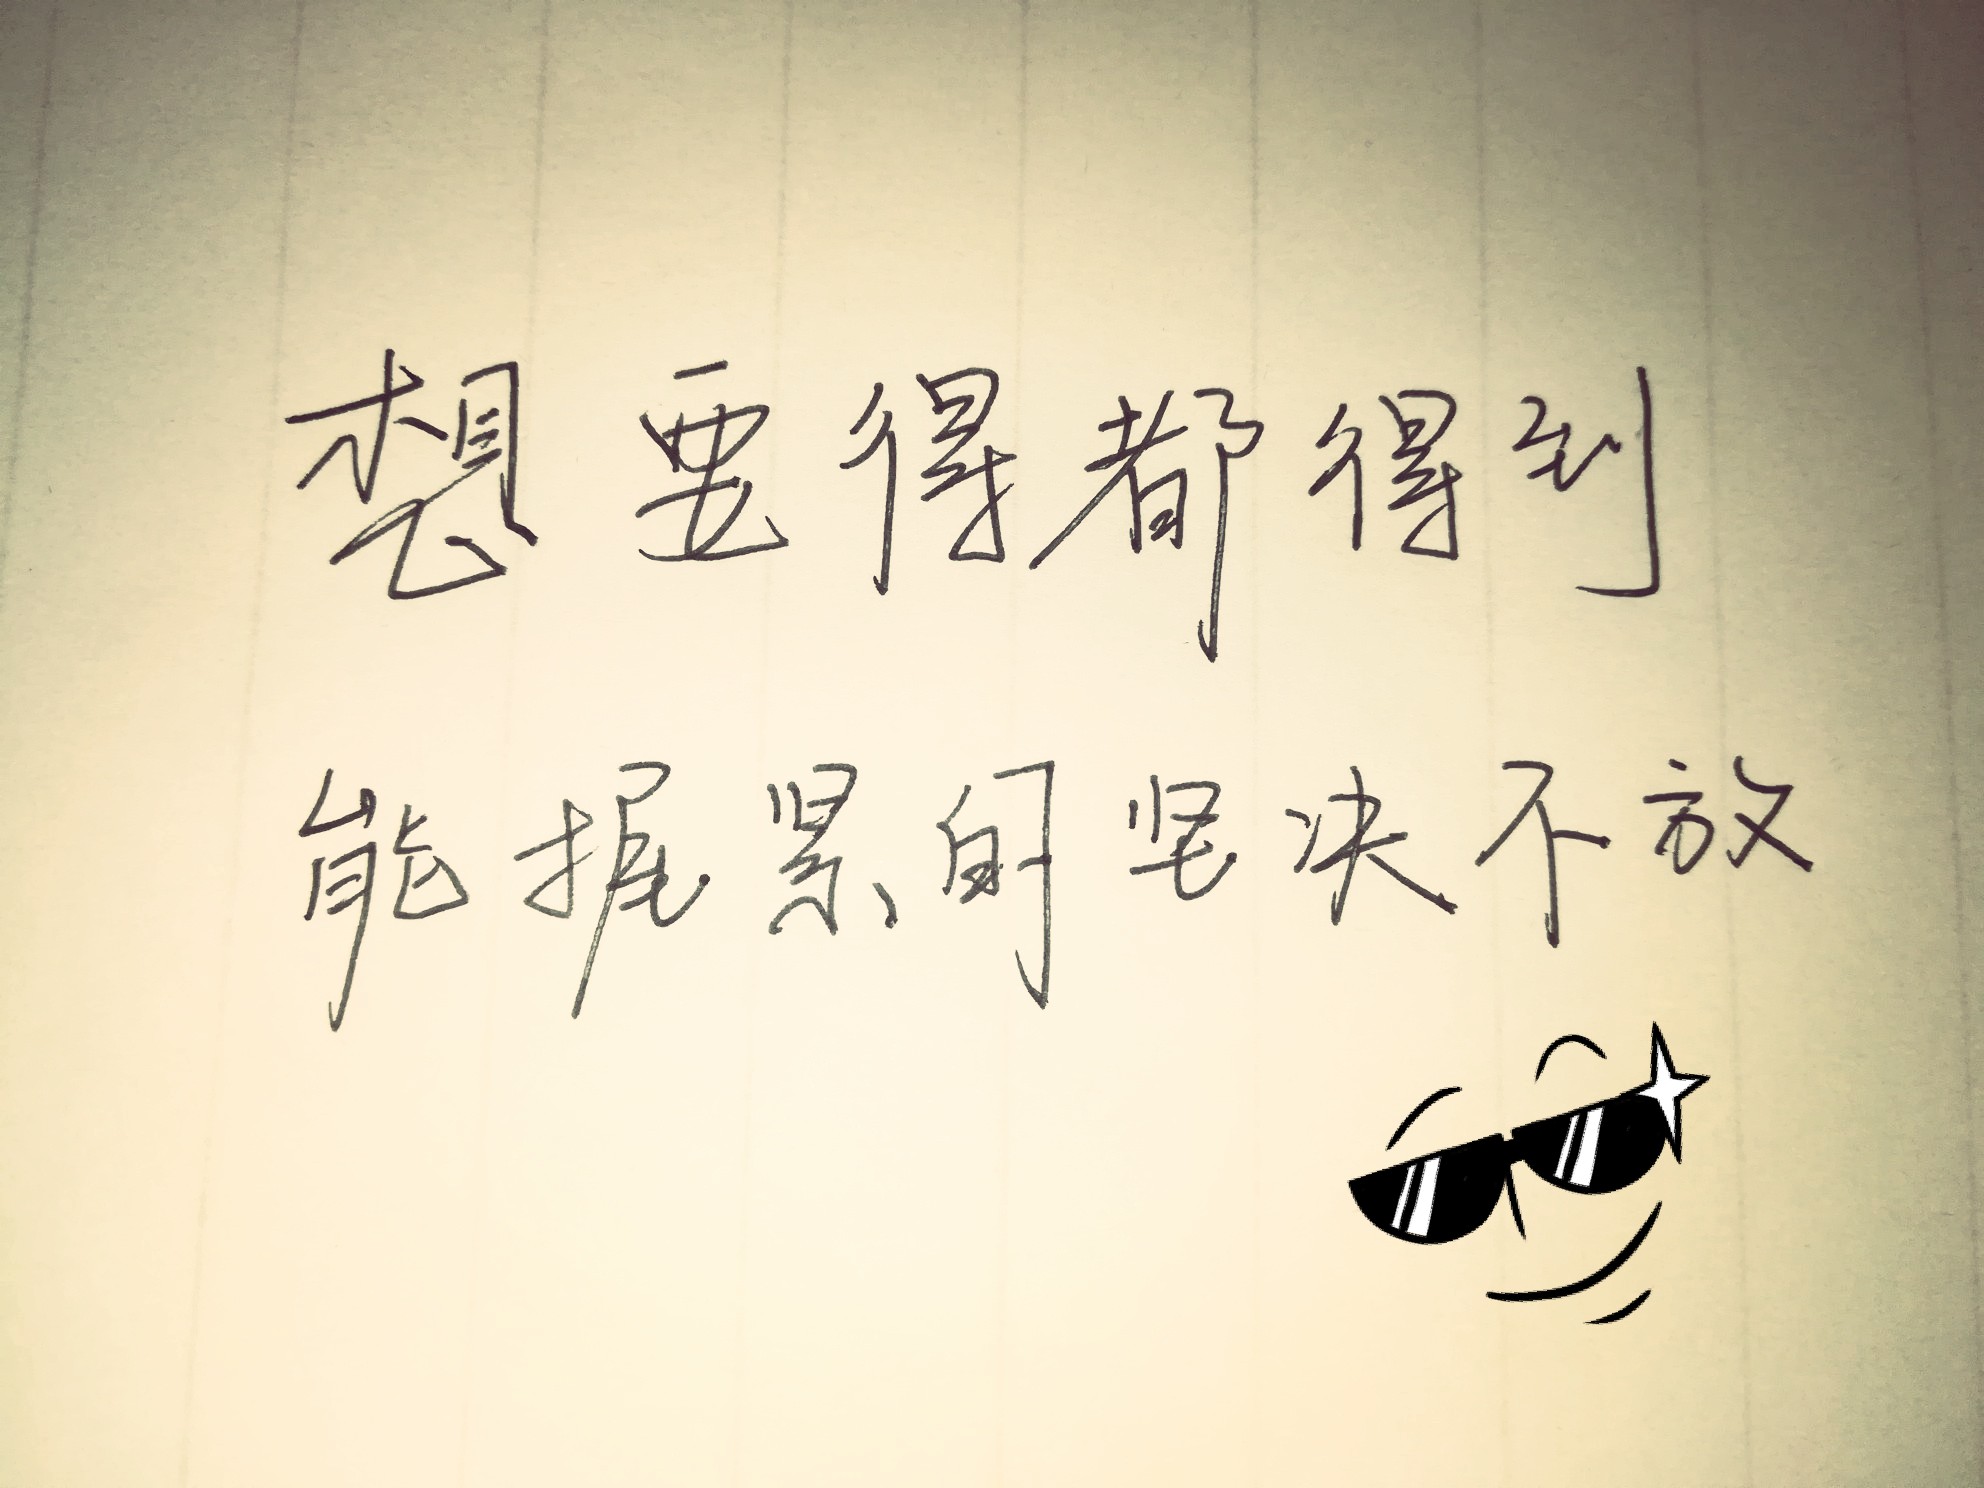 想要得都得到
能握紧的坚决不放